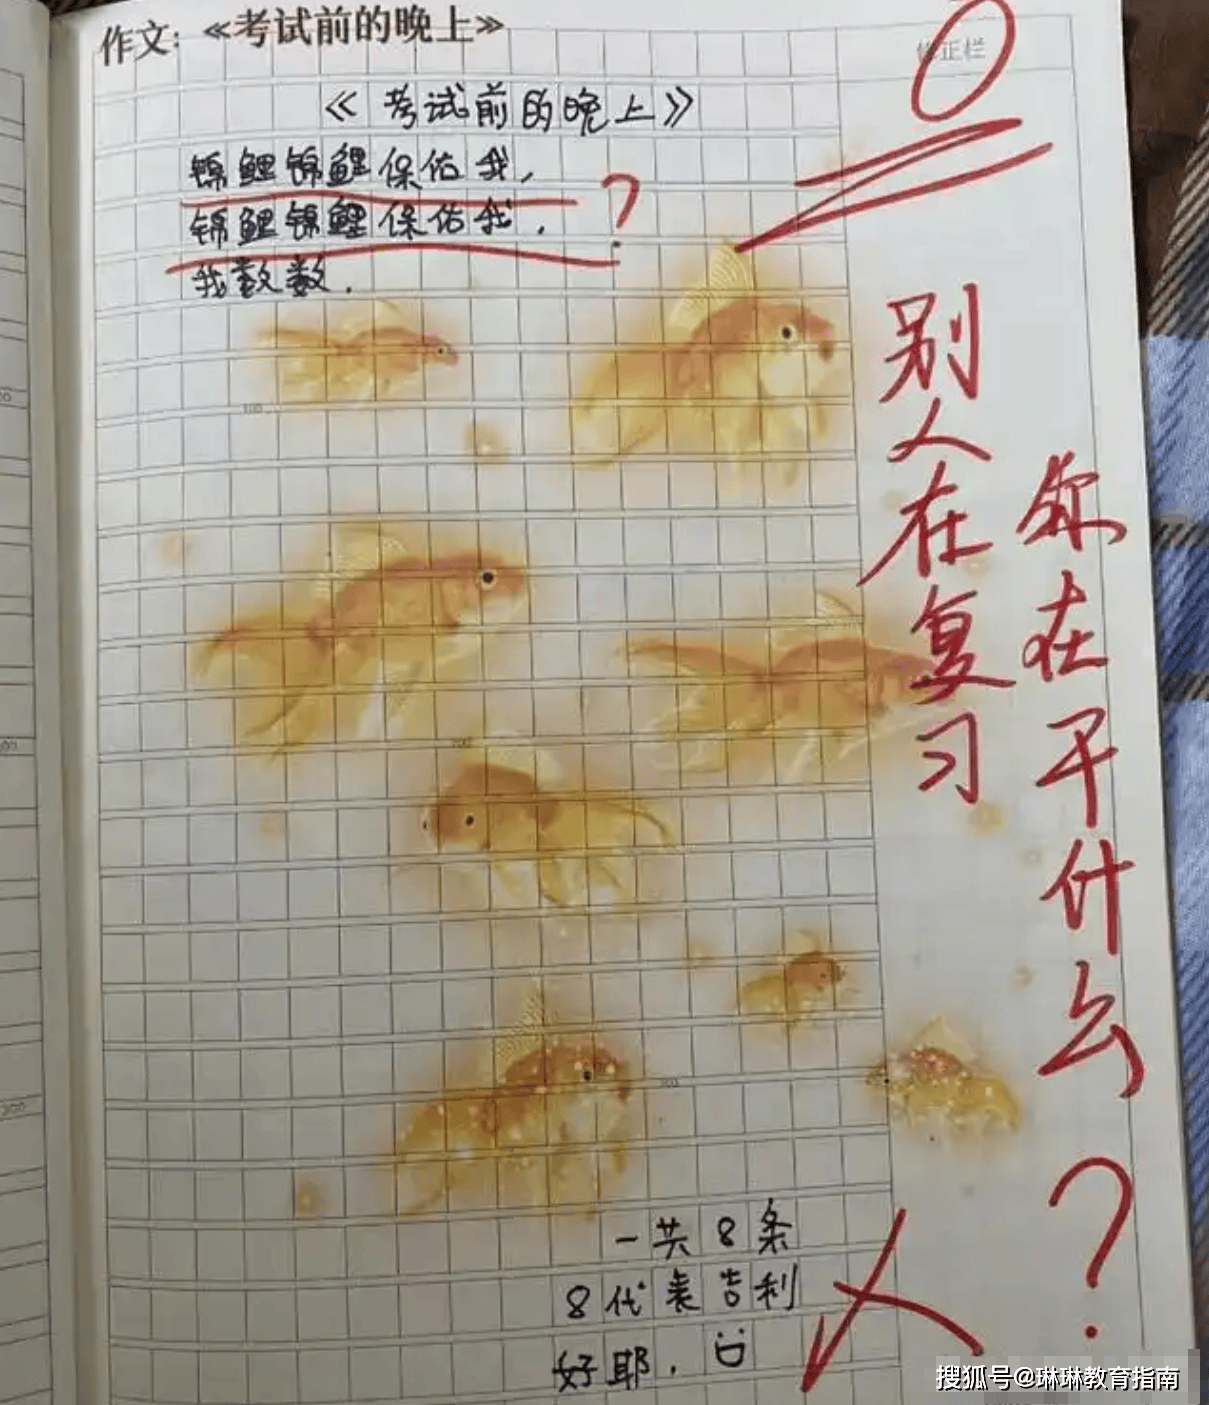 作文：《考试前的晚上》
修正栏
《考试前的晚上》
锦鲤锦鲤保佑我，
锦鲤锦鲤保佑我．
?
我数数．
100
200
300
一共8条
8代表吉利
好耶．
0
别人在复习
你在干什么?
200
搜狐号@琳琳教育指南